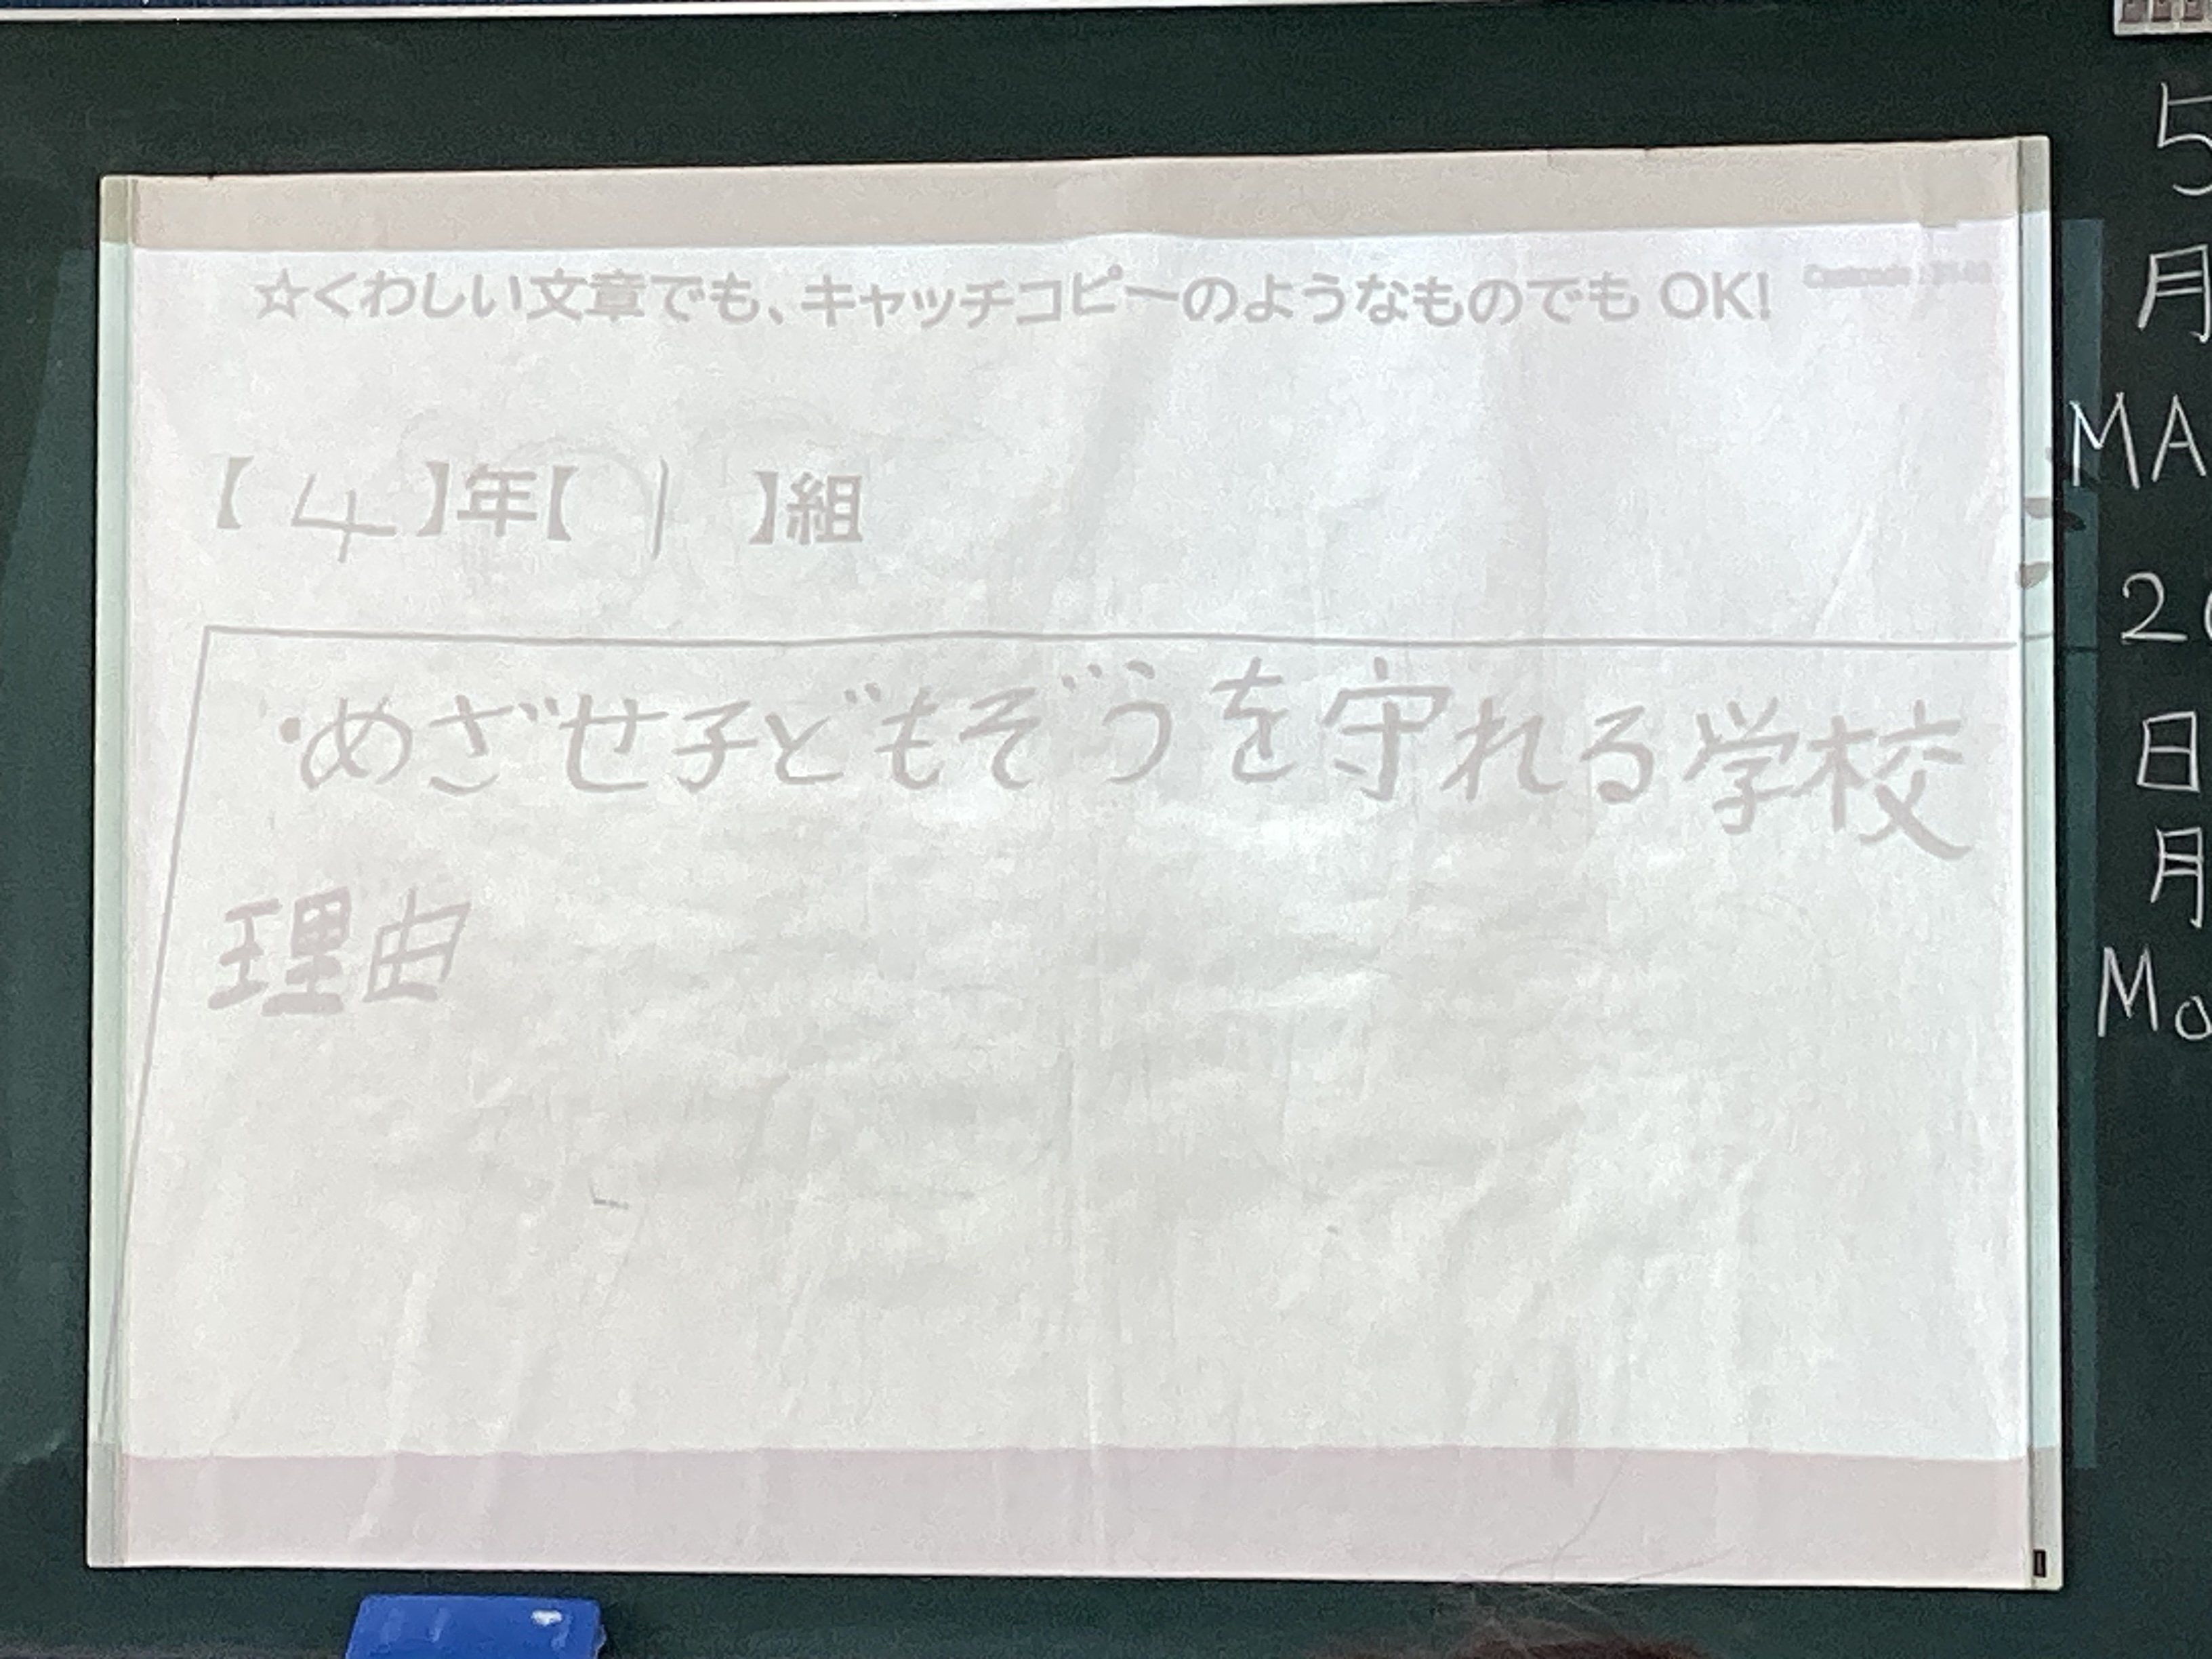 ☆くわしい文章でも、キャッチコピーのようなものでもOK!
【 4 】年【 1 】組
・めざせ子どもぞうを守れる学校
理由
5
月
MA
2
日
月
Mo